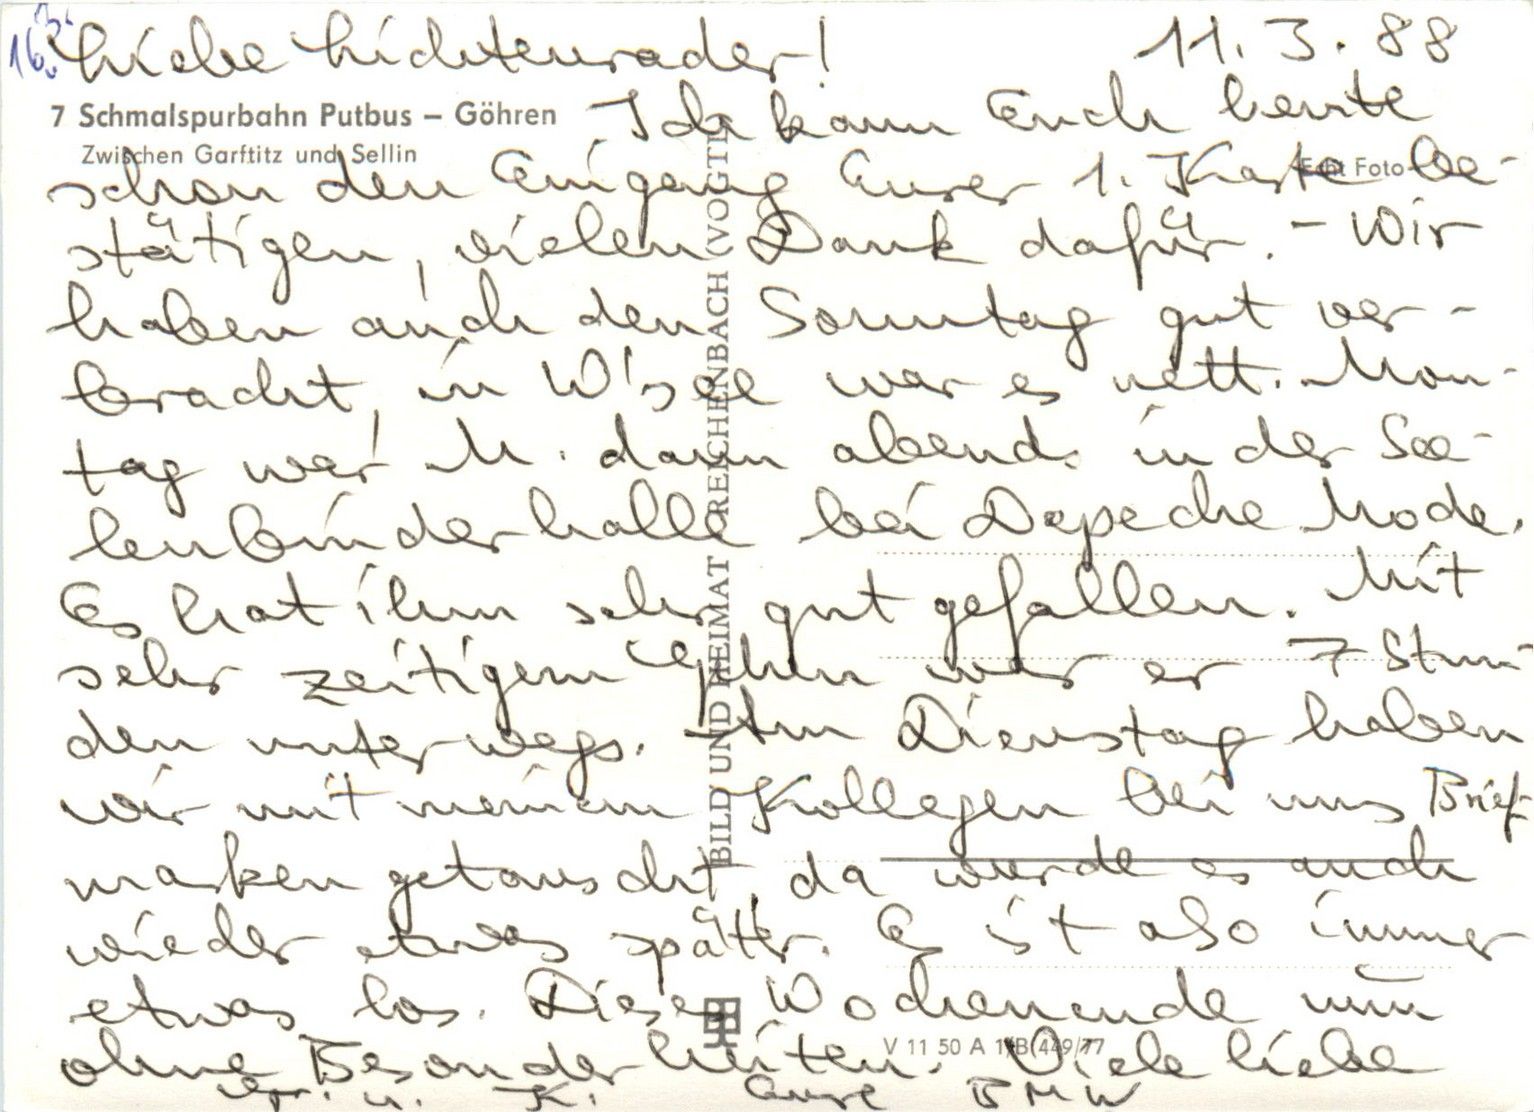 16.3.
Liebe Lichtenrader! 11.3.88
7 Schmalspurbahn Putbus – Göhren
Zwischen Garftitz und Sellin
Echt Foto
Ich kann Euch heute
schon den Eingang Eurer 1. Karte be-
stätigen, vielen Dank dafür. – Wir
haben auch den Sonntag gut ver-
bracht, in W'see war es nett. Mon-
tag war M. dann abends in der See-
lenbinderhalle bei Depeche Mode.
Es hat ihm sehr gut gefallen. Mit
sehr zeitigem war er 7 Stun-
den unterwegs. Am Dienstag haben
wir mit meinem Kollegen bei uns Brief-
marken getauscht, da wurde es auch
wieder etwas später. Es ist also immer
etwas los. Dieses Wochenende nun
ohne Besonderheiten. Viele liebe
Gr. u. K. Eure BMW
BILD UND HEIMAT REICHENBACH (VOGTL
V 11 50 A 1/B 449/77